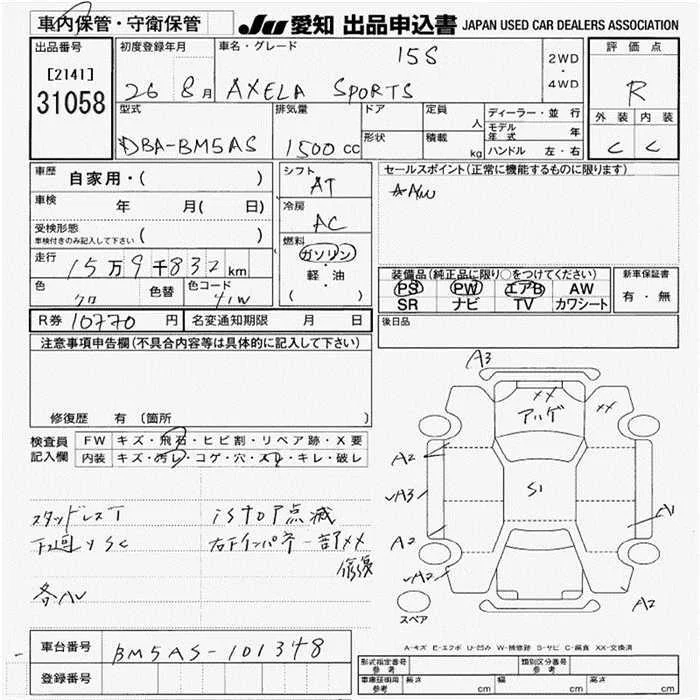 車内保管・守衛保管
JU 愛知 出品申込書 JAPAN USED CAR DEALERS ASSOCIATION
出品番号
[2141]
31058
初度登録年月
26 8月
車名・グレード
15S
AXELA SPORTS
2WD
・
4WD
評価点
R
外装 内装
C C
型式
DBA-BM5AS
排気量
1500 cc
ドア
形状
定員
人
積載
kg
ディーラー・並行
モデル年式 年
ハンドル 左・右
車歴
自家用・( )
車検
年 月( 日)
受検形態
車検付きのみ記入して下さい ( )
走行
15万9千832km
色
クロ
色替
色コード
41W
シフト
AT
冷房
AC
燃料
ガソリン
・
軽・油
( )
セールスポイント(正常に機能するものに限ります)
装備品(純正品に限り○をつけてください)
PS PW エアB AW
SR ナビ TV カワシート
新車保証書
有・無
後日品
R券 10770 円
名変通知期限 月 日
注意事項申告欄(不具合内容等は具体的に記入して下さい)
修復歴 有 〔箇所
検査員
記入欄
FW キズ・飛石・ヒビ割・リペア跡・X要
内装 キズ・汚レ・コゲ・穴・スレ・キレ・破レ
スタッドレスT
下廻りSC
isto P点滅
右下インパネ一部XX
修復
A3
XX
XX
アハゲ
A2
A3
S1
A1
A2
A2
A2
スペア
A-キズ E-エクボ U-凹み W-補修跡 S-サビ C-腐食 XX-交換済
車台番号
BM5AS-101348
登録番号
形式指定番号
参考
類別区分番号
参考
車庫証明用
参考
長さ cm
幅 cm
高さ cm